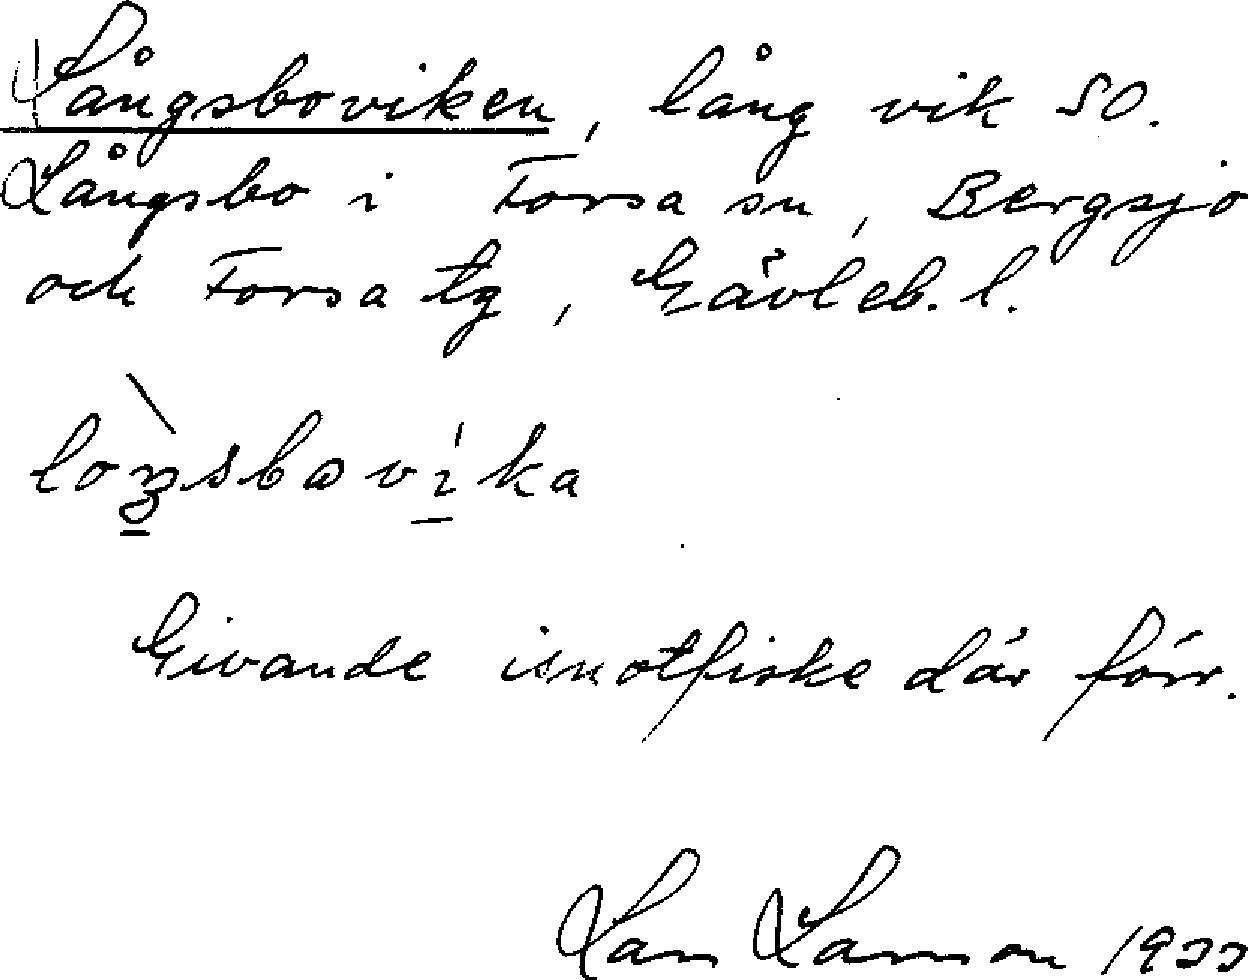 Långsboviken, lång vik SO.
Långsbo i Forsa sn, Bergsjö
och Forsa tg, Gävleb. l.
loŋsbovika
Givande isnotfiske där förr.
Lars Larsson 1933